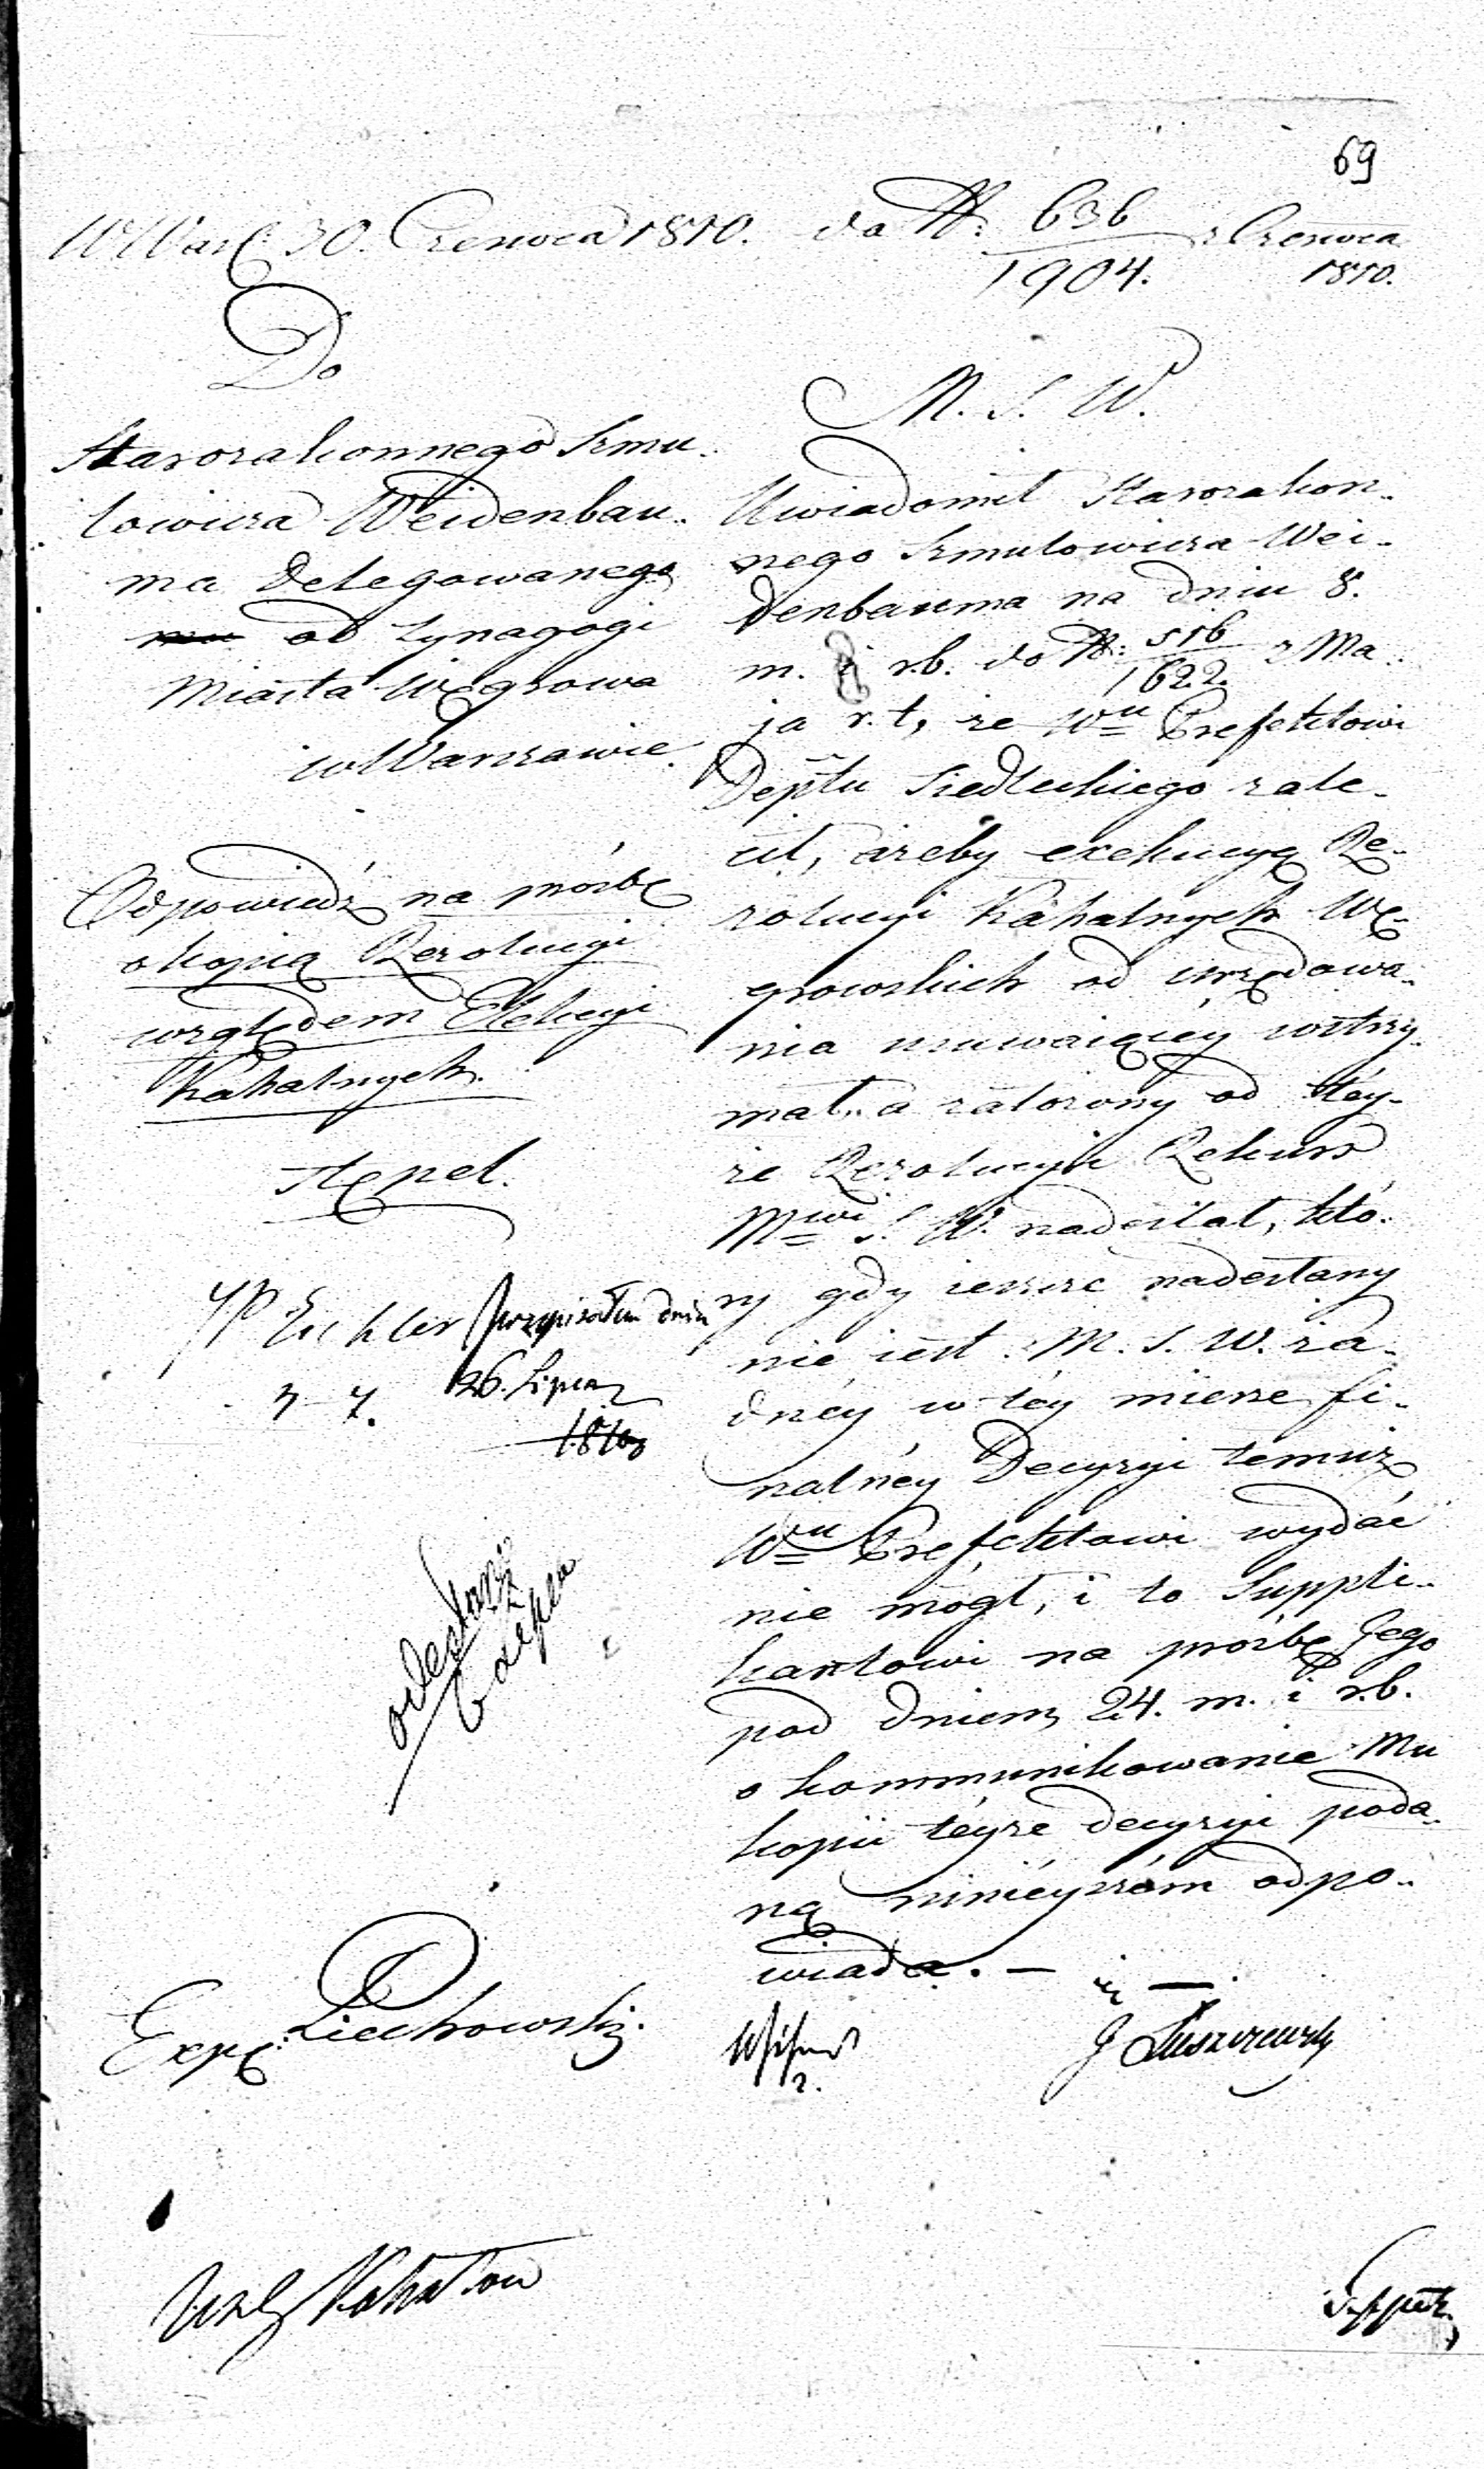 69
W Warsz. 30. Czerwca 1810. do N: 636/1904. z Czerwca 1810.
Do
Starozakonnego Szmu-
lowicza Weidenbau-
ma Delegowanego
od Synagogi
Miasta Węgrowa
w Warszawie.
Odpowiedź na prośbę
o kopią Rezolucyi
względem Elekcyi
Kahalnych.
Stępel.
Eichler przepisałem dnia
26. Lipca
1810
odesłany
Exp: Piechowski.
M. S. W.
Uwiadomił Starozakon-
nego Szmulowicza Wei-
denbauma na dniu 8.
m. i r.b. do N: 516/1622 z Ma-
ja r.t, że Wmu Prefektowi
Deptu Siedleckiego zale-
cił, ażeby exekucyą Re-
zolucyi Kahalnych Wę-
growskich od urzędowa-
nia usuwaiącéy wstrzy-
mał, a założony od téy-
że Rezolucyi Rekurs
Mwi S. W. nadesłał, któ-
ry gdy ieszcze nadesłany
nie iest M. S. W. ża-
dnéy w téy mierze fi-
nalnéy Decyzyi temuż
Wmu Prefektowi wydać
nie mógł, i to Suppli-
kantowi na prośbę Jego
pod dniem 24. m. i r.b.
o kommunikowanie Mu
kopii téyże decyzyi poda-
ną ninieyszém odpo-
wiada. —
J Łuszczewski